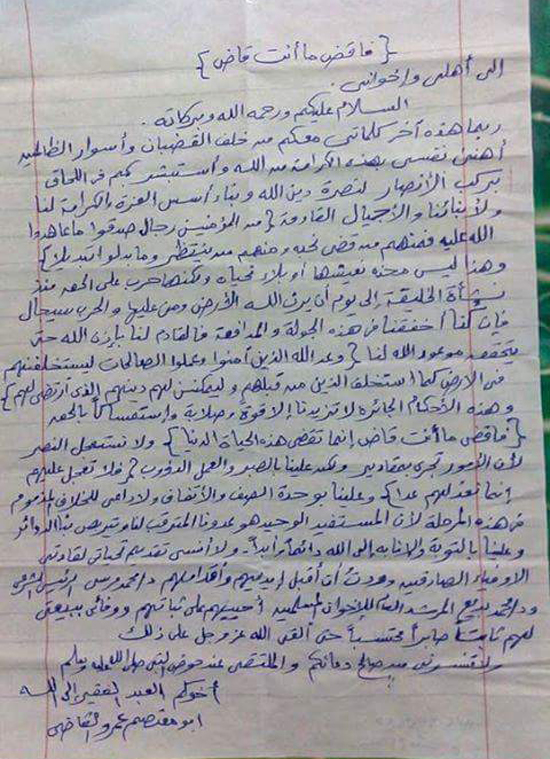 {فاقض ما أنت قاض}
إلى أهلى وإخوانى .
السلام عليكم ورحمة الله وبركاته .
ربما هذه آخر كلماتى معكم من خلف القضبان وأسوار الظالمين
أهنئ نفسى بهذه الكرامة من الله وأستبشر بكم فى اللحاق
بركب الأنصار لنصرة دين الله وبناء أسس العزة والكرامة لنا
ولأبنائنا والأجيال القادمة {من المؤمنين رجال صدقوا ما عاهدوا
الله عليه فمنهم من قضى نحبه ومنهم من ينتظر وما بدلوا تبديلا}
وهذا ليس محنة نعيشها أو بلاء نحياه ولكنها حرب على الحق منذ
نشأة الخليقة إلى يوم أن يرث الله الأرض ومن عليها والحرب سجال
فإن كنا أخفقنا فى هذه الجولة والمدافعة فالقادم لنا بإذن الله حتى
يتحقق موعود الله لنا {وعد الله الذين آمنوا وعملوا الصالحات ليستخلفنهم
فى الأرض كما استخلف الذين من قبلهم وليمكنن لهم دينهم الذى ارتضى لهم}
وهذه الأحكام الجائرة لا تزيدنا إلا قوة وصلابة واستمساكاً بالحق
{فاقض ما أنت قاض إنما تقضى هذه الحياة الدنيا} ولا نستعجل النصر
لأن الأمور تجرى بمقادير ولكن علينا بالصبر والعمل الدؤوب {فلا تعجل عليهم
إنما نعد لهم عدا} وعلينا بوحدة الصف والأتفاق ولا داعى للخلاف المذموم
فى هذه المرحلة لأن المستفيد الوحيد هو عدونا المترقب لنا ويتربص بنا الدوائر
وعلينا بالتوبة والإنابة إلى الله دائماً وأبداً . ولا أنسى تقديم تحياتى لقادتى
الأوفياء الصادقين وددت أن أقبل أيديهم وأقدامهم د/محمد مرسى الرئيس الشرعى
ود/محمد بديع المرشد العام للإخوان المسلمين أحييهم على ثباتهم ووفائى ببيعتى
لهم ثابتاً صابراً محتسباً حتى ألقى الله عز وجل على ذلك
ولا تنسونى من صالح دعائكم والملتقى عند حوض النبى صلى الله عليه وسلم
أخوكم العبد الفقير إلى الله
ابو معتصم عمرو القاضى